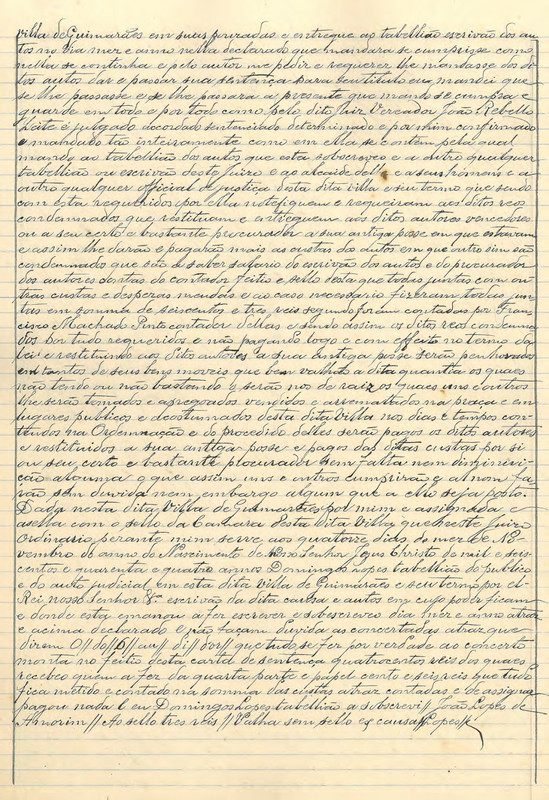 villa de Guimarães em suas pouzadas e entregue ao tabellião escrivão dos au
tos no dia mez e anno nella declarado que mandara se cumprisse como
nella se continha e pelo autos me pedir e requerer lhe mandasse dos di
tos autos dar e passar sua sentença para seu titulo eu mandei que
se lhe passasse e se lhe passara a presente que mando se cumpra e
guarde em todo e por todo como pelo dito Juiz Vereador João Rebello
Leite é julgado acordado sentenciado determinado e por mim confirmado
e mandado tão inteiramente como em ella se contem pela qual
mando ao tabellião dos autos que esta sobscreveo e a outro qualquer
tabellião ou escrivão deste juizo e ao alcaide delle e a seus homens e a
outro qualquer official de justiça desta dita villa e seu termo que sendo
com esta requeridos por ella notefiquem e requeiram aos ditos reos
condemnados que restituam e entreguem aos ditos autores vencedores
ou a seu certo e bastante procurador a sua antiga posse em que estavam
e assim lhe darão e pagarão mais as custas dos autos em que outro sim são
condemnados que são a saber salario do escrivão dos autos e do procurador
dos autores contas do contador feitio e sello desta que todas juntas com ou
tras custas e despezas meudas e ao caso necessario fizeram todas jun
tas em somma de seiscentos e tres reis segundo foram contadas por Fran
cisco Machado Pinto contador dellas e sendo assim os ditos reos condemna
dos por tudo requeridos e não pagando logo e com effeito no termo da
lei e restituindo aos ditos autores a sua antiga posse serão penhorados
em tantos de seus bens moveis que bem valham a dita quantia os quaes
não tendo ou não bastando o serão nos de raiz os quaes uns e outros
lhe serão tomados e apregoados vendidos e arrematados na praça e em
lugares publicos e acostumados desta dita villa nos dias e tempos con
teudos na Ordemnação e do procedido delles serão pagos os ditos autores
e restituidos a sua antiga posse e pagos das ditas custas por si
ou seu certo e bastante procurador sem falta nem diminui
ção alguma o que assim uns e outros cumprirão e al nom fa
rão sem duvida nem embargo algum que a ello seja posto.
Dada nesta dita Villa de Guimarães por mim e assignada e
asella com o sello da Camara desta dita Villa que neste juizo
Ordinario perante mim serve aos quatorze dias do mez de No
vembro do anno do Nascimento de Nosso Senhor Jesus Christo de mil e seis
centos e quarenta e quatro annos Domingos Lopes tabellião do publico
e do auto judicial em esta dita villa de Guimarães e seu termo por el
Rei nosso Senhor &ª escrivão da dita causa e autos em cujo poder ficam
e donde esta emanou a fez escrever e sobscreveo dia mez e anno atraz
e acima declarado e não façam duvida as concertadas atraz que
dizem O// do// // au// di// dor// que tudo se fez por verdade ao concerto
monta no feitio desta carta de sentença quatrocentos reis dos quaes
recebeo quem a fez da quarta parte e papel cento e seis reis que tudo
fica metido e contado na somma das custas atraz contadas e de assignar
pagou nada e eu Domingos Lopes tabellião a sobscrevi// João Lopes de
Amorim// Ao sello tres reis// Valha sem sello ex causa// Lopes//